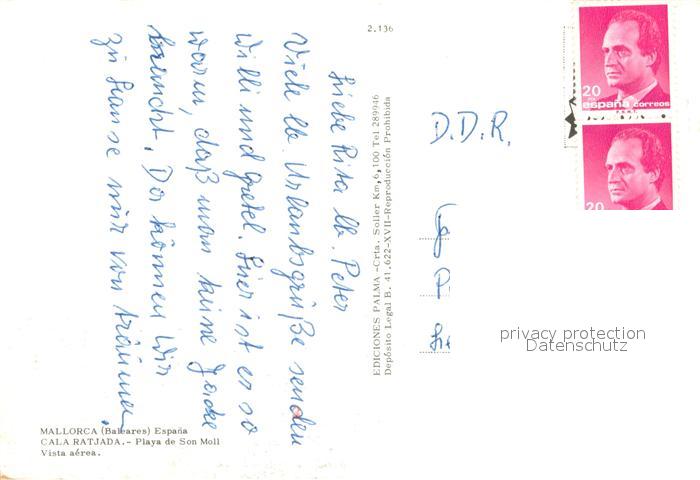 2.136
Liebe Rita lb. Peter
Viele lb Urlaubsgrüße senden
Willi und Gretel. Hier ist es so
warm, daß man keine Jacke
braucht. Da können wir
zu Hause nur von träumen.
MALLORCA (Baleares) España
CALA RATJADA.- Playa de Son Moll
Vista aérea.
EDICIONES PALMA -Crta. Soller Km, 6,100 Tel 289946
Depósito Legal B. 41.622-XVII-Reproducción Prohibida
20
españa correos
F.N.M.T.
20
D.D.R.
P
privacy protection
Datenschutz